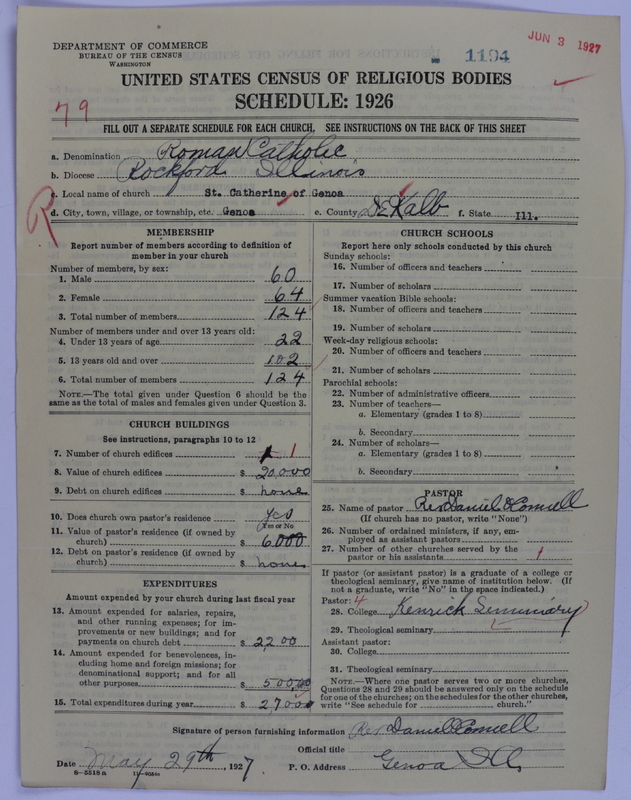 JUN 3 1927
1194
DEPARTMENT OF COMMERCE
BUREAU OF THE CENSUS
WASHINGTON
UNITED STATES CENSUS OF RELIGIOUS BODIES
SCHEDULE: 1926
79
FILL OUT A SEPARATE SCHEDULE FOR EACH CHURCH. SEE INSTRUCTIONS ON THE BACK OF THIS SHEET
a. Denomination Roman Catholic
b. Diocese Rockford Illinois
c. Local name of church St. Catherine of Genoa
R
d. City, town, village, or township, etc. Genoa e. County DeKalb f. State Ill.
MEMBERSHIP
Report number of members according to definition of
member in your church
Number of members, by sex:
1. Male 60
2. Female 64
3. Total number of members 124
Number of members under and over 13 years old:
4. Under 13 years of age 22
5. 13 years old and over 102
6. Total number of members 124
NOTE.—The total given under Question 6 should be
same as the total of males and females given under Question 3.
CHURCH BUILDINGS
See instructions, paragraphs 10 to 12
7. Number of church edifices 1 1
8. Value of church edifices $ 20,000
9. Debt on church edifices $ none
10. Does church own pastor's residence yes
(Yes or No)
11. Value of pastor's residence (if owned by
church) $ 6000
12. Debt on pastor's residence (if owned by
church) $ none
EXPENDITURES
Amount expended by your church during last fiscal year
13. Amount expended for salaries, repairs,
and other running expenses; for im-
provements or new buildings; and for
payments on church debt $ 2200
14. Amount expended for benevolences, in-
cluding home and foreign missions; for
denominational support; and for all
other purposes $ 500,00
15. Total expenditures during year $ 2700
CHURCH SCHOOLS
Report here only schools conducted by this church
Sunday schools:
16. Number of officers and teachers
17. Number of scholars
Summer vacation Bible schools:
18. Number of officers and teachers
19. Number of scholars
Week-day religious schools:
20. Number of officers and teachers
21. Number of scholars
Parochial schools:
22. Number of administrative officers
23. Number of teachers—
a. Elementary (grades 1 to 8)
b. Secondary
24. Number of scholars—
a. Elementary (grades 1 to 8)
b. Secondary
PASTOR
25. Name of pastor Rev Daniel O'Connell
(If church has no pastor, write "None")
26. Number of ordained ministers, if any, em-
ployed as assistant pastors
27. Number of other churches served by the
pastor or his assistants 1
If pastor (or assistant pastor) is a graduate of a college or
theological seminary, give name of institution below. (If
not a graduate, write "No" in the space indicated.)
Pastor: 4
28. College Kenrick Seminary
29. Theological seminary
Assistant pastor:
30. College
31. Theological seminary
NOTE.—Where one pastor serves two or more churches,
Questions 28 and 29 should be answered only on the schedule
for one of the churches; on the schedules for the other churches,
write "See schedule for church."
Signature of person furnishing information Rev Daniel O'Connell
Official title
Date May 29th, 1927 P. O. Address Genoa Ill
8—5518 a